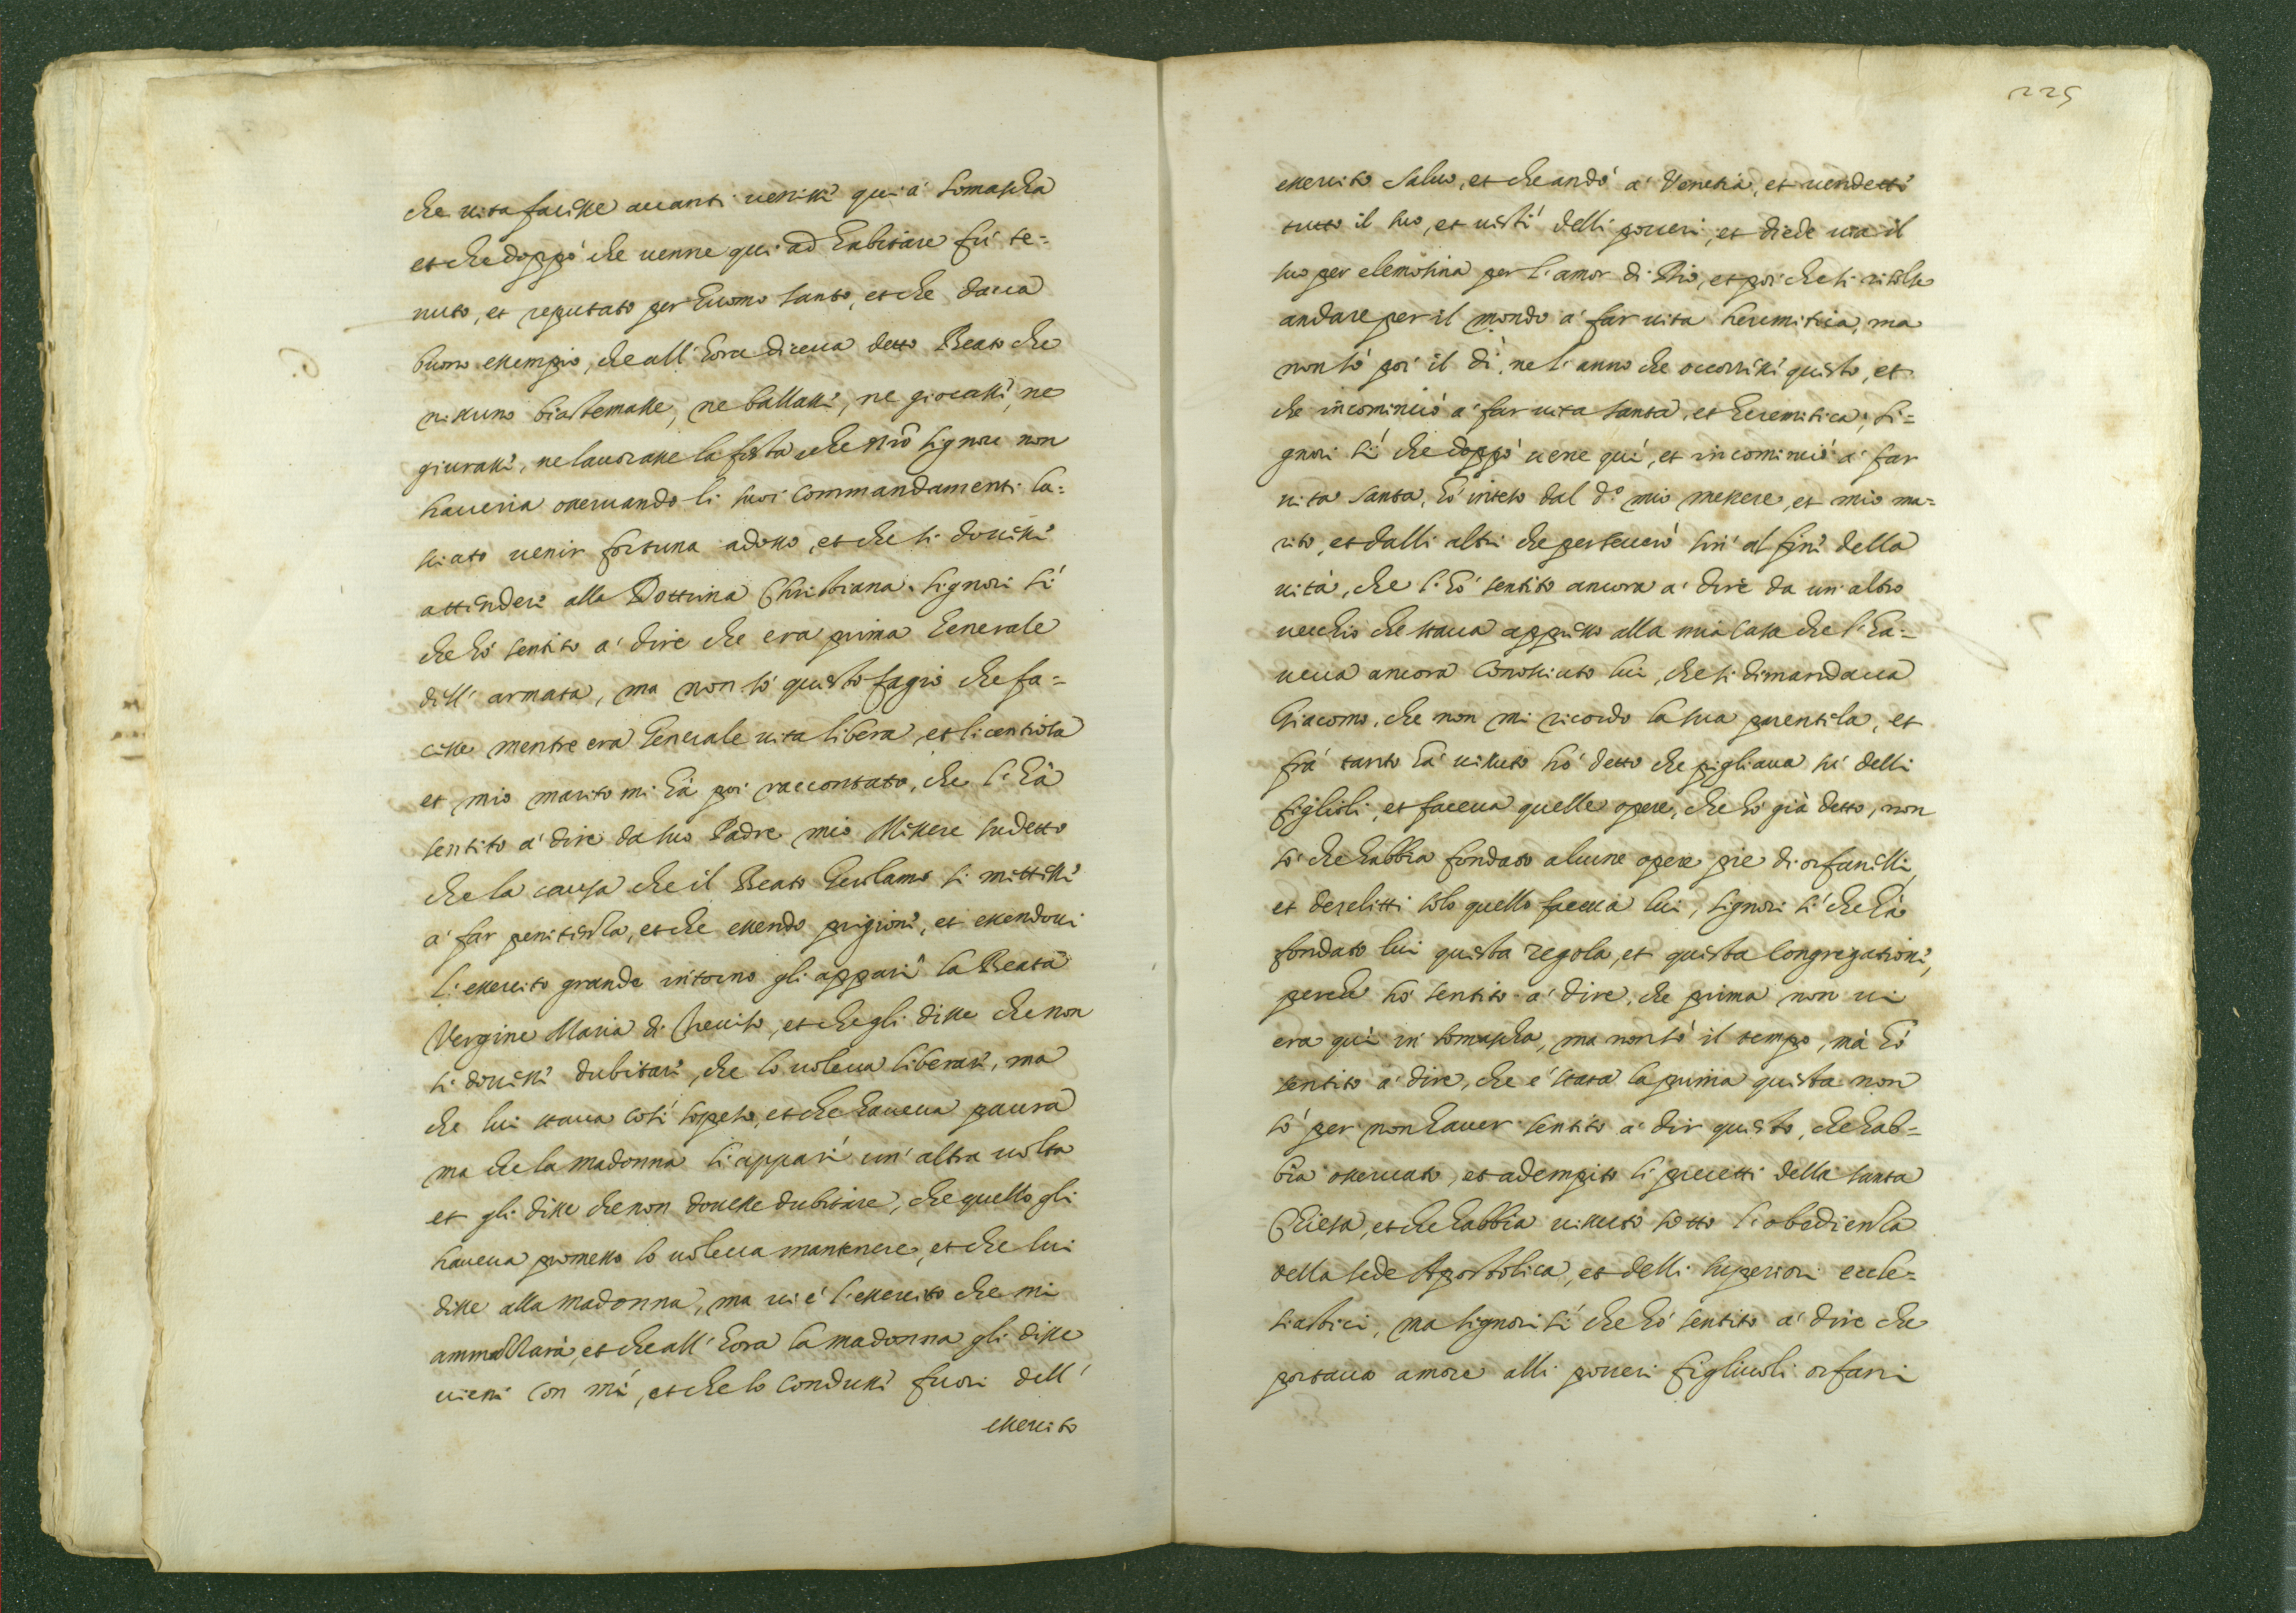 che uita facesse auanti uenisse qui à Somascha
et che doppò che uenne qui ad habitare fù te=
nuto, et reputato per huomo santo, et che daua
buono essempio, che all'hora diceua detto Beato che
nissuno biastemasse, ne ballasse, ne giocasse, ne
giurasse, ne lauorasse la festa, che nro Signore non
haueria osseruando li suoi commandamenti la=
sciato uenir fortuna adosso, et che si douesse
attendere alla Dottrina Christiana. Signori sì
che hò sentito à dire che era prima Generale
dell'armata, ma non sò questo fagio che fa=
cesse mentre era Generale uita libera, et licentiosa
et mio marito mi hà poi raccontato, che l'hà
sentito à dire da suo Padre mio Messere sudetto
che la causa che il Beato Gerolamo si mettesse
à far penitenza, et che essendo prigione, et essendoui
l'essercito grande intorno gli apparì la Beata
Vergine Maria di Treuiso, et che gli disse che non
si douesse dubitare, che lo uoleua liberare, ma
che lui staua così sospeso, et che haueua paura
ma che la madonna li apparì un'altra uolta
et gli disse che non douesse dubitare, che quello gli
haueua promesso lo uoleua mantenere, et che lui
disse alla madonna, ma ui è l'essercito che mi
ammazzarà, et che all'hora la madonna gli disse
uieni con mì, et che lo condusse fuori dell'
essercito
6.
225
essercito saluo, et che andò à Venetia, et uendette
tutto il suo, et uestì delli poueri, et diede uia il
suo per elemosina per l'amor di Dio, et poi che si risolse
andare per il mondo à far uita heremitica, ma
non sò poi il dì, ne l'anno che occorresse questo, et
che incominciò à far uita santa, et heremitica; Si=
gnori sì che doppò uene quì, et incominciò à far
uita santa, hò inteso dal d.º mio messere, et mio ma=
rito, et dalli altri che perseuerò sin' al fine della
uita, che l'hò sentito ancora à dire da un'altro
uecchio che staua appresso alla mia casa che l'ha=
ueua ancora conosciuto lui, che si dimandaua
Giacomo, che non mi ricordo la sua parentela, et
frà tanto hà uissuto hò detto che pigliaua sù delli
figlioli, et faceua quelle opere, che hò già detto, non
sò che habbia fondato alcune opere pie di orfanelli,
et derelitti solo quello faceua lui, Signori sì che hà
fondato lui questa regola, et questa congregatione,
perche hò sentito à dire, che prima non ui
era quì in Somascha, ma non sò il tempo, mà hò
sentito à dire, che è stata la prima questa non
sò per non hauer sentito à dir questo, che hab=
bia osseruato, et adempito li precetti della santa
Chiesa, et che habbia uissuto sotto l'obedienza
della sede Apostolica, et delli superiori eccle=
siastici, ma signori sì che hò sentito à dire che
portaua amore alli poueri figliuoli orfani
7.